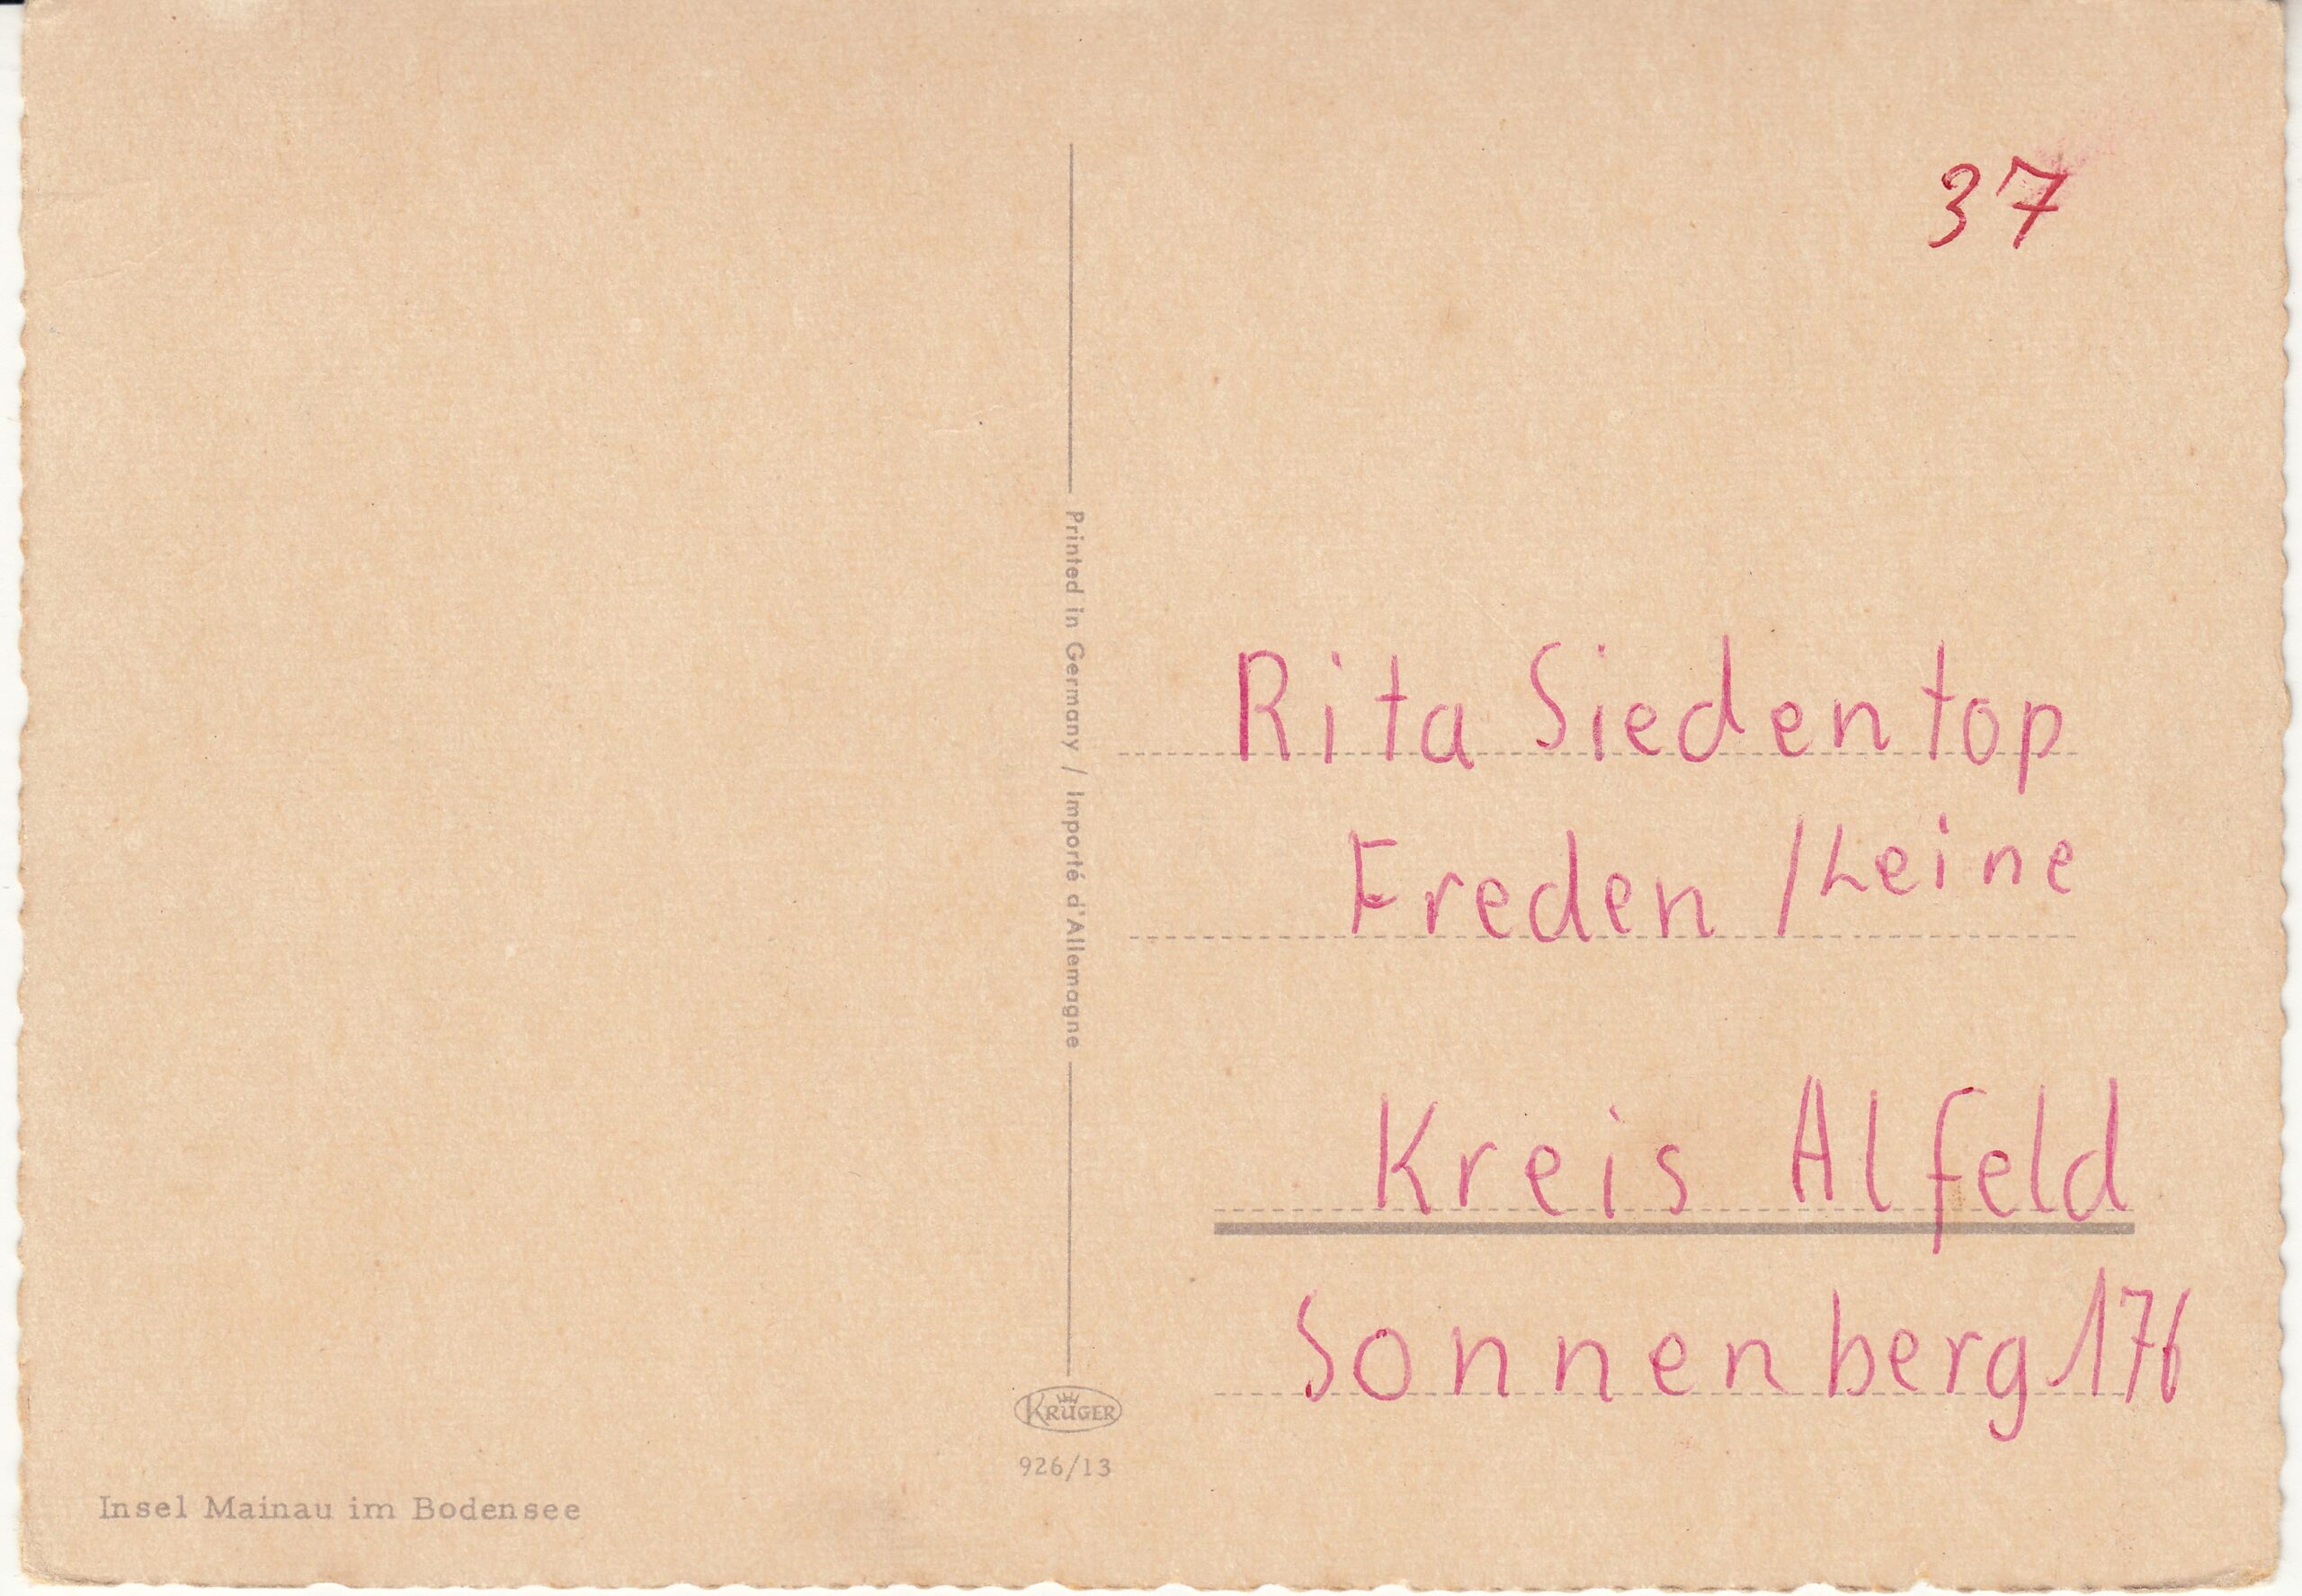 37
Printed in Germany / Importé d'Allemagne
Rita Siedentop
Freden / Leine
Kreis Alfeld
Sonnenberg 176
KRÜGER
926/13
Insel Mainau im Bodensee